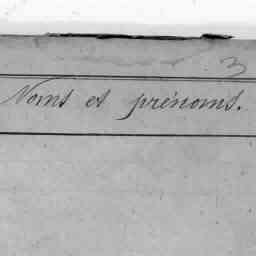 3
Noms et prénoms.